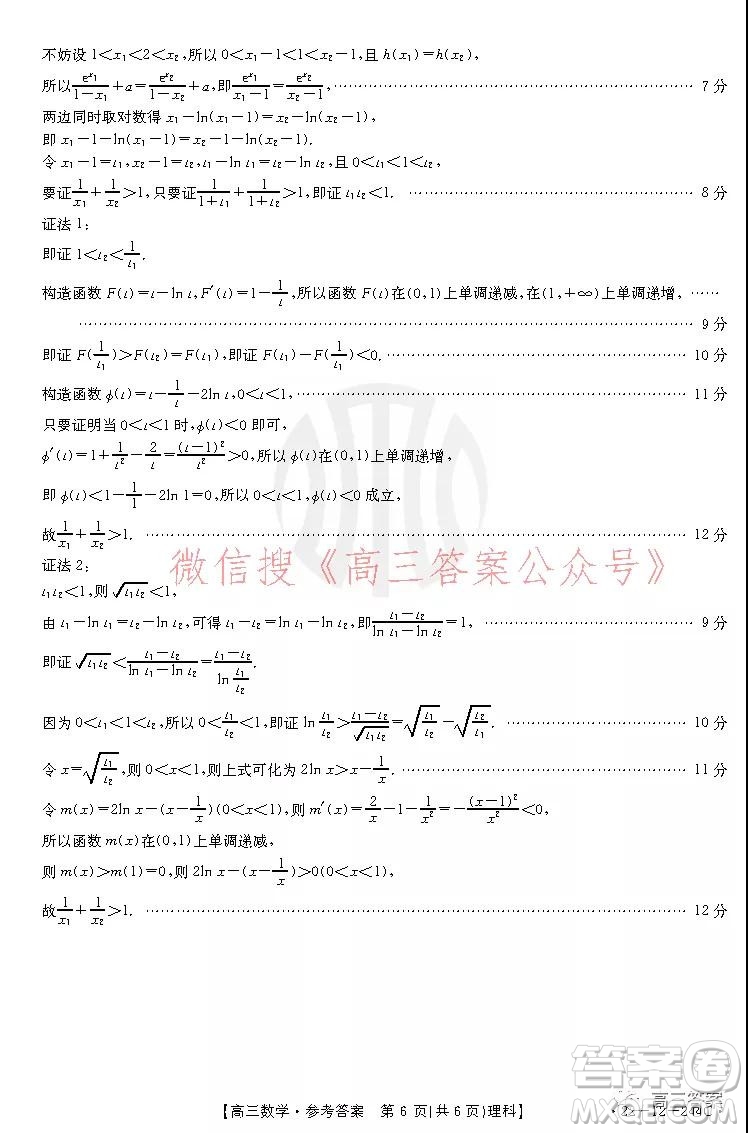 不妨设 1<x₁<2<x₂,所以 0<x₁-1<1<x₂-1,且 h(x₁)=h(x₂),
所以e^{x₁}/(1-x₁)+a=e^{x₂}/(1-x₂)+a,即e^{x₁}/(x₁-1)=e^{x₂}/(x₂-1), …… 7 分
两边同时取对数得 x₁-ln(x₁-1)=x₂-ln(x₂-1),
即 x₁-1-ln(x₁-1)=x₂-1-ln(x₂-1).
令 x₁-1=t₁,x₂-1=t₂,t₁-ln t₁=t₂-ln t₂,且 0<t₁<1<t₂,
要证1/x₁+1/x₂>1,只要证1/(1+t₁)+1/(1+t₂)>1,即证 t₁t₂<1. …… 8 分
证法 1:
即证 1<t₂<1/t₁.
构造函数 F(t)=t-ln t,F′(t)=1-1/t,所以函数 F(t)在(0,1)上单调递减,在(1,+∞)上单调递增, ……
…… 9 分
即证 F(1/t₁)>F(t₂)=F(t₁),即证 F(t₁)-F(1/t₁)<0. …… 10 分
构造函数 φ(t)=t-1/t-2ln t,0<t<1, …… 11 分
只要证明当 0<t<1 时,φ(t)<0 即可,
φ′(t)=1+1/t²-2/t=(t-1)²/t²>0,所以 φ(t)在(0,1)上单调递增,
即 φ(t)<1-1/1-2ln 1=0,所以 0<t<1,φ(t)<0 成立,
故1/x₁+1/x₂>1. …… 12 分
微信搜《高三答案公众号》
证法 2:
t₁t₂<1,则√(t₁t₂)<1,
由 t₁-ln t₁=t₂-ln t₂,可得 t₁-t₂=ln t₁-ln t₂,即(t₁-t₂)/(ln t₁-ln t₂)=1, …… 9 分
即证√(t₁t₂)<(t₁-t₂)/(ln t₁-ln t₂)=(t₁-t₂)/ln(t₁/t₂).
因为 0<t₁<1<t₂,所以 0<t₁/t₂<1,即证 ln t₁/t₂>(t₁-t₂)/√(t₁t₂)=√(t₁/t₂)-√(t₂/t₁). …… 10 分
令 x=√(t₁/t₂),则 0<x<1,则上式可化为 2ln x>x-1/x. …… 11 分
令 m(x)=2ln x-(x-1/x)(0<x<1),则 m′(x)=2/x-1-1/x²=-(x-1)²/x²<0,
所以函数 m(x)在(0,1)上单调递减,
则 m(x)>m(1)=0,则 2ln x-(x-1/x)>0(0<x<1),
故1/x₁+1/x₂>1. …… 12 分
【高三数学·参考答案 第 6 页(共 6 页)理科】
高三答案
答案圈
MXQE.COM